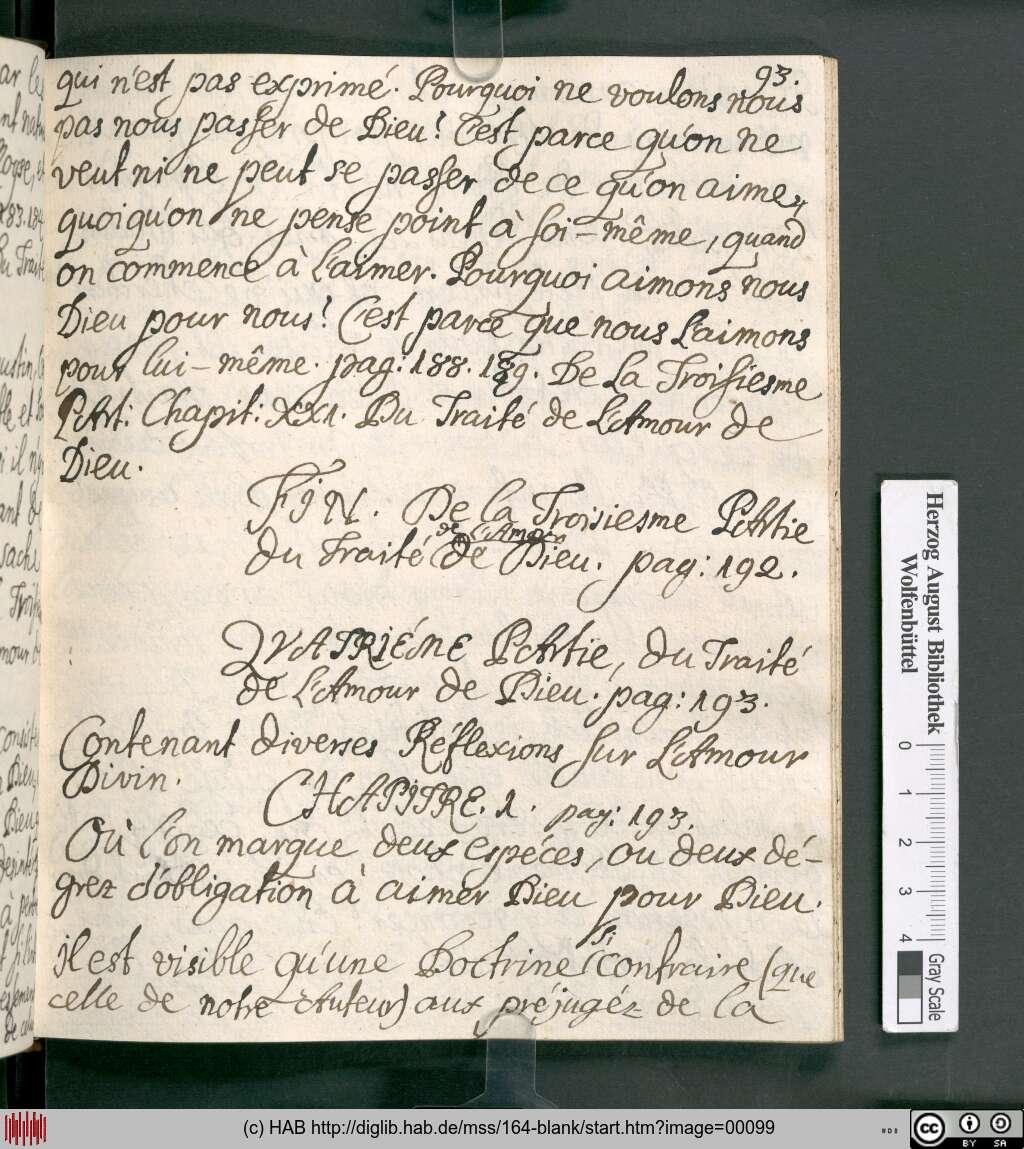 93.
qui n'est pas exprimé. Pourquoi ne voulons nous
pas nous passer de Dieu? C'est parce qu'on ne
veut ni ne peut se passer de ce qu'on aime,
quoiqu'on ne pense point à soi-même, quand
on commence à L'aimer. Pourquoi aimons nous
Dieu pour nous? C'est parce que nous L'aimons
pour lui-même. pag: 188. 189. De La Troisiesme
PArt: Chapit: XXI. Du Traité de L'Amour de
Dieu.
FIN. De la Troisiesme PArtie
de L'Amour
du Traité de Dieu. pag: 192.
QVATRIÉME PArtie, du Traité
de L'Amour de Dieu. pag: 193.
Contenant diverses Réflexions sur L'Amour
Divin.
CHAPITRE. 1. pag: 193.
Où l'on marque deux espéces, ou deux dé-
grez d'obligation à aimer Dieu pour Dieu.
il est visible qu'une Doctrine si contraire (que
celle de notre Auteur) aux préjugéz de la
Herzog August Bibliothek
Wolfenbüttel
0 1 2 3 4
Gray Scale
(c) HAB http://diglib.hab.de/mss/164-blank/start.htm?image=00099
cc BY SA